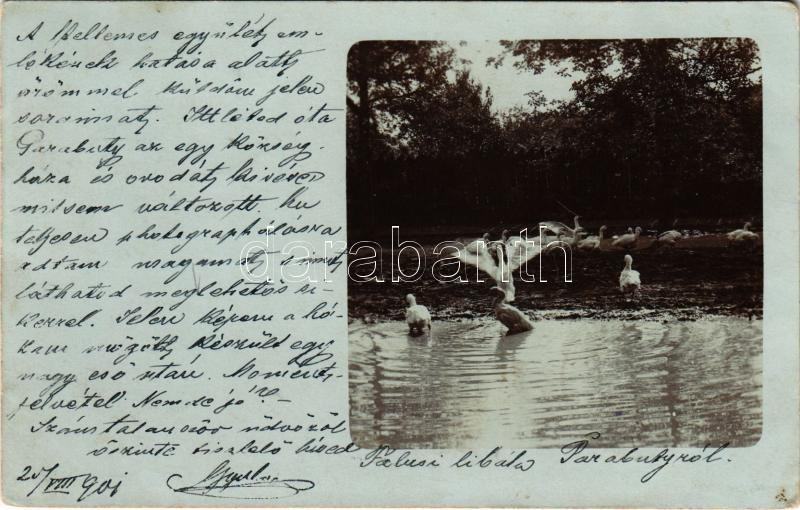 A kellemes együlétj em-
lékének hatása alatt
örömmel küldöm jelen
soraimat. Ittléted óta
Parabuty az egy község-
háza és ovodát kivéve
mitsem változott, ha
teljesen photographálásra
adtam magamat, s mint
láthatod meglehetős si-
kerrel. Jelen képem a há-
zam mögött készült egy
nagy eső után. Moment-
felvétel Nemde jó? –
Számtalanszor üdvözöl
őszinte tisztelő híved
20/VIII 901 Gyula
Falusi libák Parabutyról.
darabanth